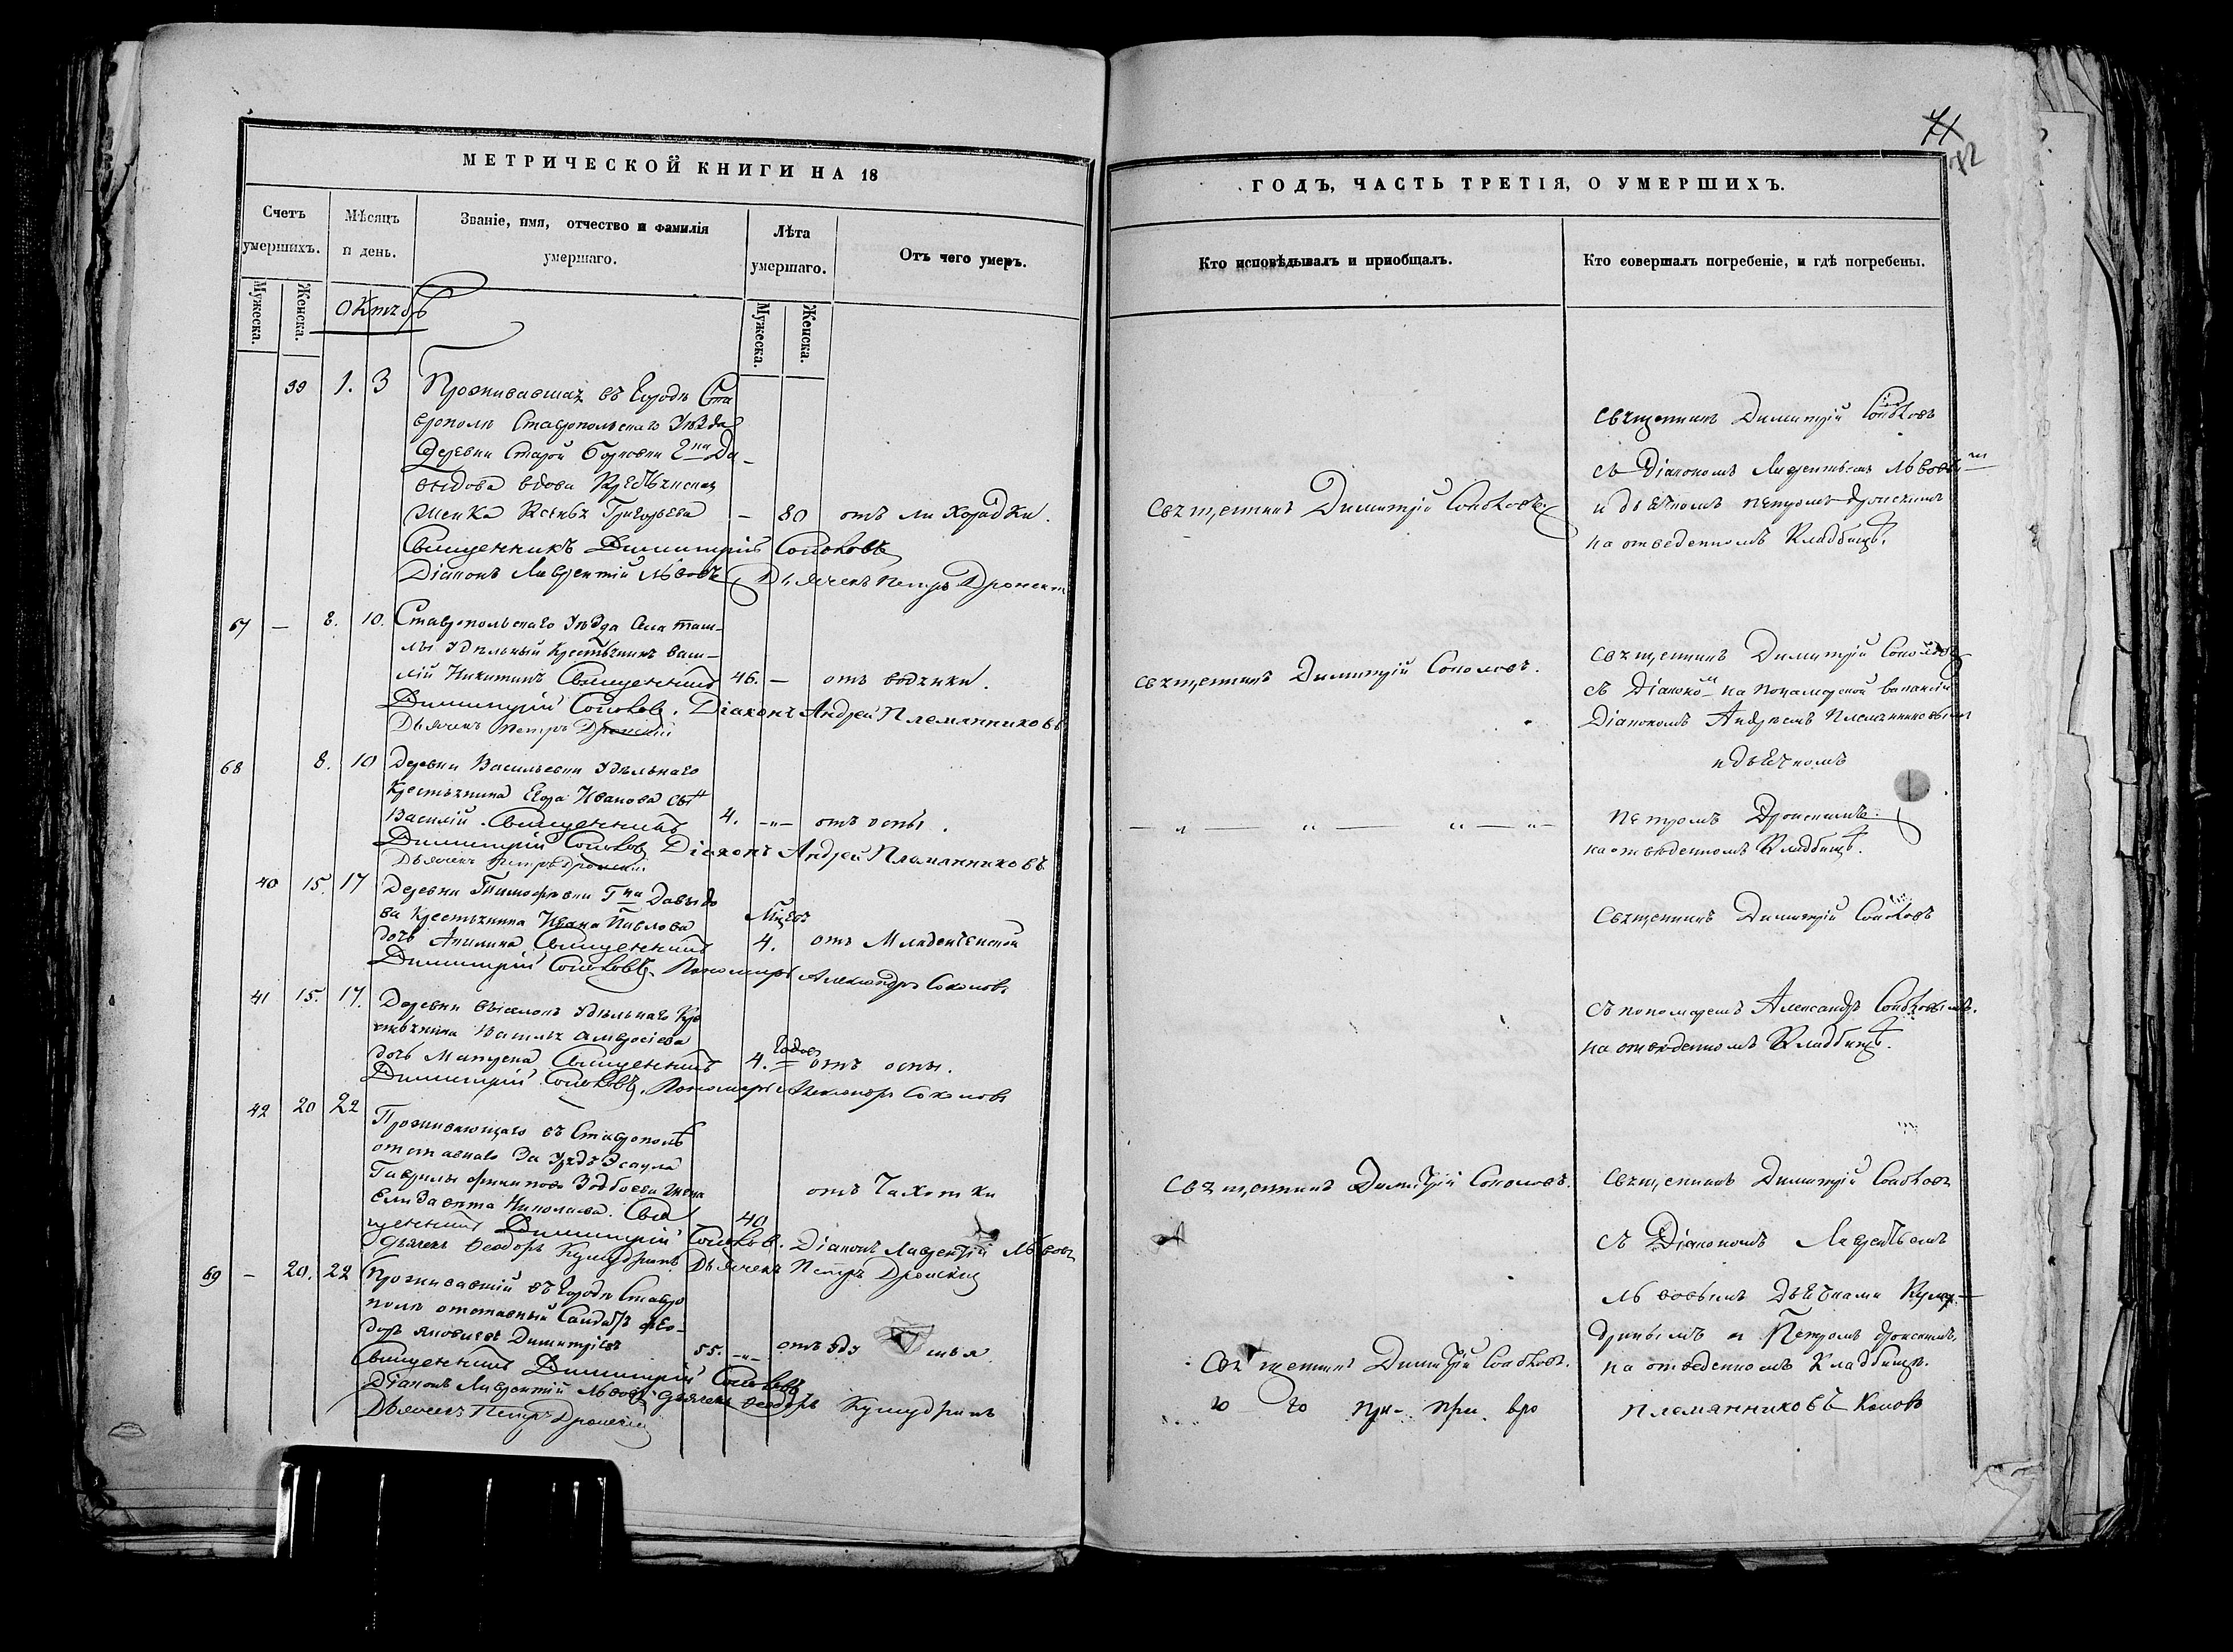 71
МЕТРИЧЕСКОЙ КНИГИ НА 18
Счетъ умершихъ.
Мѣсяцъ и день.
Званіе, имя, отчество и фамилія умершаго.
Лѣта умершаго.
Отъ чего умеръ.
Мужеска.
Женска.
Мужеска.
Женска.
Октябрь
39 1. 3 Проживавшая въ Городѣ Ста
врополѣ Ставропольскаго Уѣзда
Деревни Старой Борковки 2на Да
выдова вдова Крестьянская
женка Ксенья Григорьева — 80 отъ лихорадки.
Священникъ Димитрій Соколовъ
Діаконъ Лаврентій Львовъ Дьячекъ Петръ Дронскій
67 — 8. 10. Ставропольскаго Уѣзда Села Таш-
лы Удѣльный Крестьянинъ Васи-
лій Никитинъ Священникъ 46. — отъ водянки.
Димитрій Соколовъ. Діаконъ Андрей Племянниковъ
Дьячекъ Петръ Дронскій
68 8. 10 Деревни Васильевки Удѣльнаго
Крестьянина Егора Иванова сынъ
Василій. Священникъ 4. -"- отъ оспы.
Димитрій Соколовъ Діаконъ Андрей Племянниковъ
Дьячекъ Петръ Дронскій
40 15. 17 Деревни Тимофѣевки Гна Давыдо
ва Крестьянина Ивана Павлова Мцевъ
дочь Акилина Священникъ 4. отъ Младенческой
Димитрій Соколовъ. Пономарь Александръ Соколовъ
41 15. 17. Деревни Выселокъ Удѣльнаго Кре
стьянина Василья Амвросіева
дочь Матрена Священникъ 4. Годовъ отъ оспы.
Димитрій Соколовъ. Пономарь Александръ Соколовъ
42 20 22 Проживающаго въ Ставрополѣ
отставнаго За Урядъ Эсаула
Гаврилы Филипова Жена
Елизавета Николаева. Свя 40 отъ Чахотки
щенникъ Димитрій Соколовъ. Діаконъ Лаврентій Львовъ
Дьячекъ Ѳеодоръ Кумудринъ Дьячекъ Петръ Дронскій
69 — 20. 22 Проживавшій въ Городѣ Ставро
полѣ отставный Салдатъ Ѳео-
доръ Яковлевъ Димитріевъ 55. -"- отъ
Священникъ Димитрій Соколовъ
Діаконъ Лаврентій Львовъ Дьячекъ Ѳеодоръ Кумудринъ
Дьячекъ Петръ Дронскій
ГОДЪ, ЧАСТЬ ТРЕТІЯ, О УМЕРШИХЪ.
Кто исповѣдывалъ и пріобщалъ.
Кто совершалъ погребеніе, и гдѣ погребены.
Священникъ Димитрій Соколовъ
съ Діакономъ Лаврентьемъ Львовымъ
и дьячкомъ Петромъ Дронскимъ
Священникъ Димитрій Соколовъ
на отведенномъ Кладбищѣ.
Священникъ Димитрій Соколовъ
Священникъ Димитрій Соколовъ.
съ Діакономъ на Пономарской вакансіи
Діакономъ Андреемъ Племянниковымъ
и дьячкомъ
— " — " — " — " —
Петромъ Дронскимъ
на отведенномъ Кладбищѣ.
Священникъ Димитрій Соколовъ
съ пономаремъ Александръ Соколовымъ.
на отведенномъ Кладбищѣ.
Священникъ Димитрій Соколовъ.
Священникъ Димитрій Соколовъ
съ Діакономъ Лаврентьемъ
Львовымъ дьячками Куму-
дринымъ и Петромъ Дронскимъ.
Священникъ Димитрій Соколовъ.
на отведенномъ Кладбищѣ.
го го при- при. вро
Племянниковъ